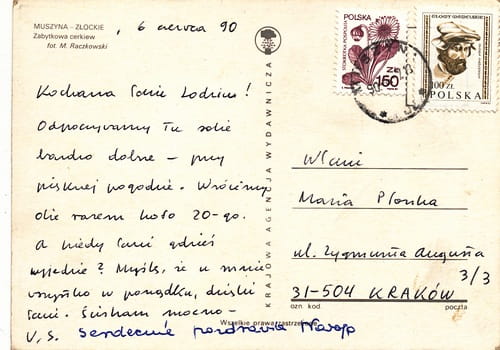 MUSZYNA – ZŁOCKIE
Zabytkowa cerkiew
fot. M. Raczkowski
6 czerwca 90
Kochana Pani Lodziu!
Odpoczywamy tu sobie
bardzo dobrze – przy
pięknej pogodzie. Wrócimy
razem koło 20-go.
A kiedy Pani gdzieś
wyjedzie? Myślę, że u mnie
wszystko w porządku, dzięki
Pani. Ściskam mocno –
Serdecznie pozdrawia
KRAJOWA AGENCJA WYDAWNICZA
Wszelkie prawa zastrzeżone
POLSKA
ZŁ
150
100 ZŁ
POLSKA
90
Maria Płonka
ul. Zygmunta Augusta
3/3
31-504 KRAKÓW
ozn kod
poczta